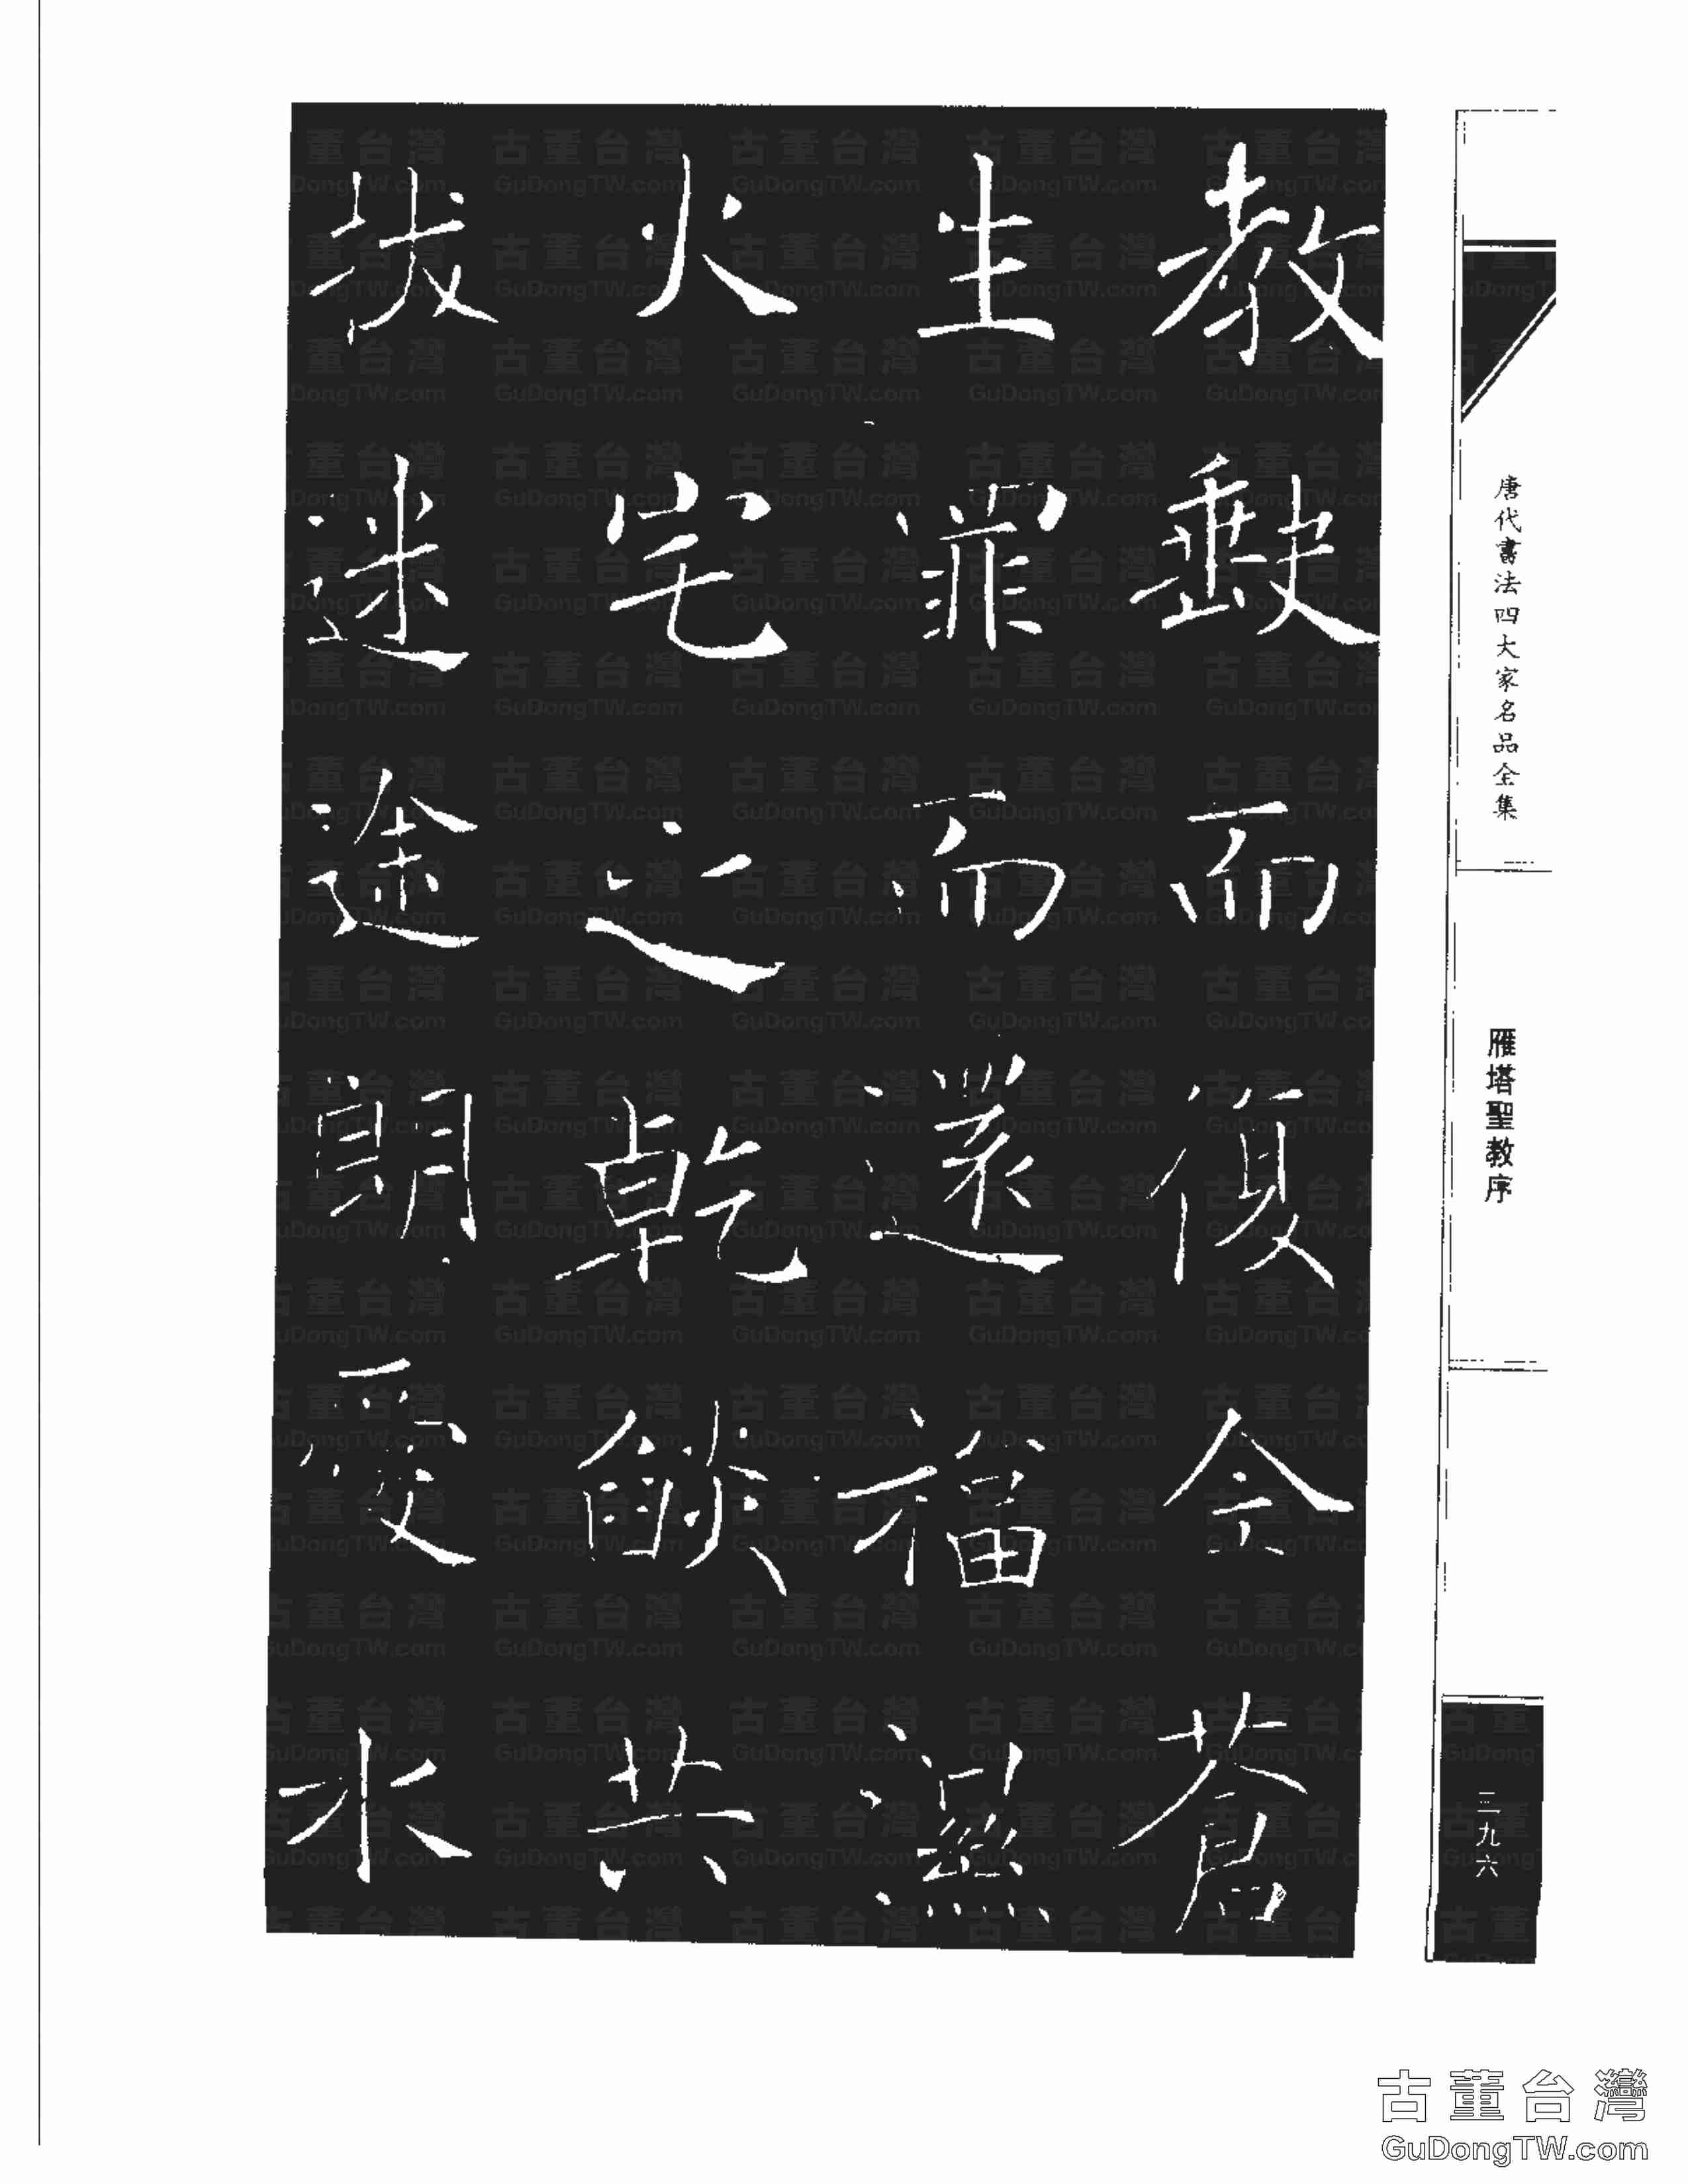 唐代書法四大家名品全集
雁塔聖教序
三九六
教缺而復全蒼
生罪而還福濕
火宅之乾燄共
拔迷途朗愛水
古董台灣
GuDongTW.com